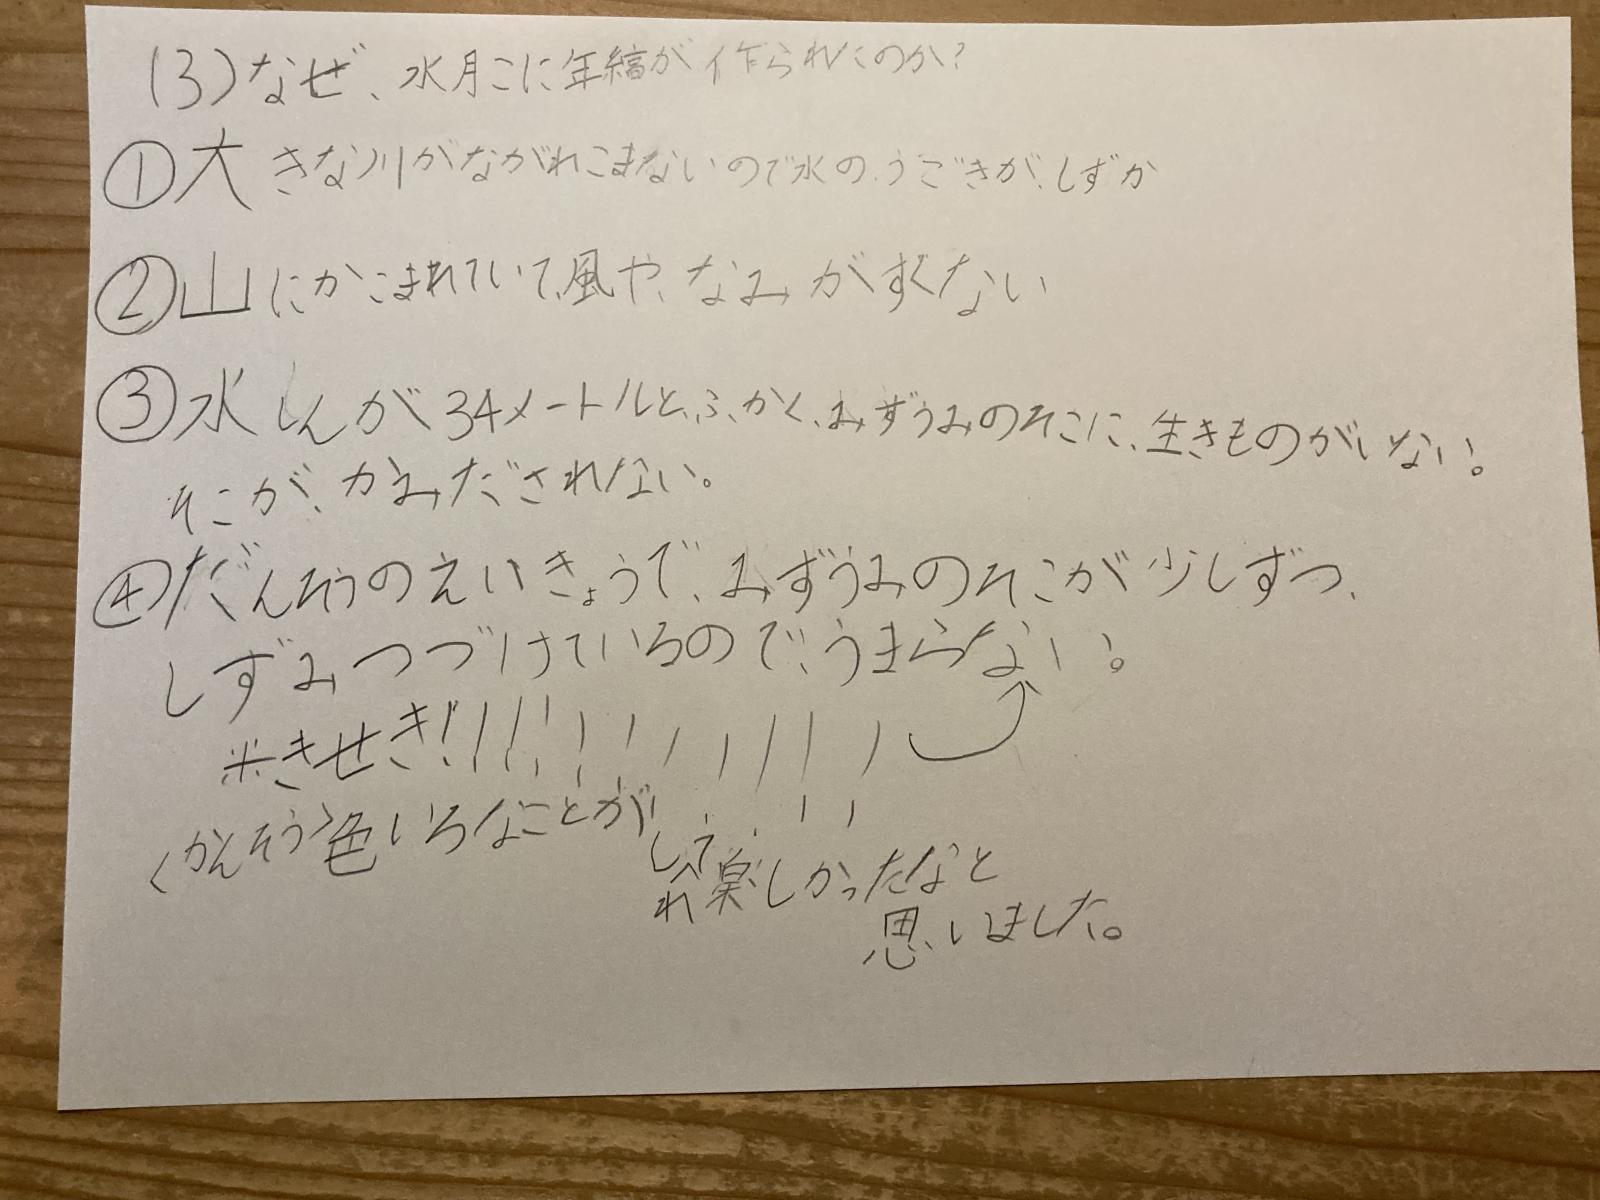 (3)なぜ、水月こに年縞が作られたのか?
①大きな川がながれこまないので水の、うごきが、しずか
②山にかこまれていて、風や、なみがすくない
③水しんが34メートルと、ふかく、みずうみのそこに、生きものがいない。
そこが、かみだされない。
④だんそうのえいきょうで、みずうみのそこが少しずつ、
しずみつづけているので、うまらない。
※きせき!!!!!!!!!!!!
<かんそう>色いろなことが
しれて
楽しかったなと
思いました。